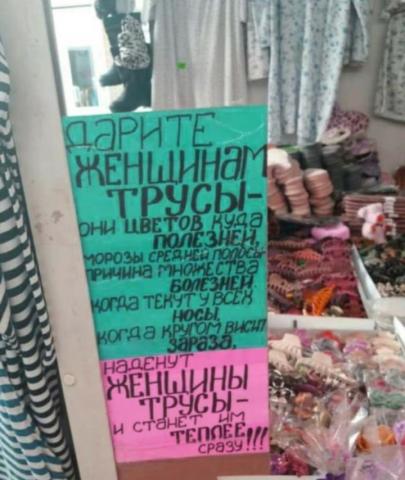 ДАРИТЕ
ЖЕНЩИНАМ
ТРУСЫ-
ОНИ ЦВЕТОВ КУДА
ПОЛЕЗНЕЙ.
МОРОЗЫ СРЕДНЕЙ ПОЛОСЫ-
ПРИЧИНА МНОЖЕСТВА
БОЛЕЗНЕЙ.
КОГДА ТЕКУТ У ВСЕХ
НОСЫ,
КОГДА КРУГОМ ВИСИТ
ЗАРАЗА,
НАДЕНУТ
ЖЕНЩИНЫ
ТРУСЫ-
И СТАНЕТ ИМ
ТЕПЛЕЕ
СРАЗУ!!!